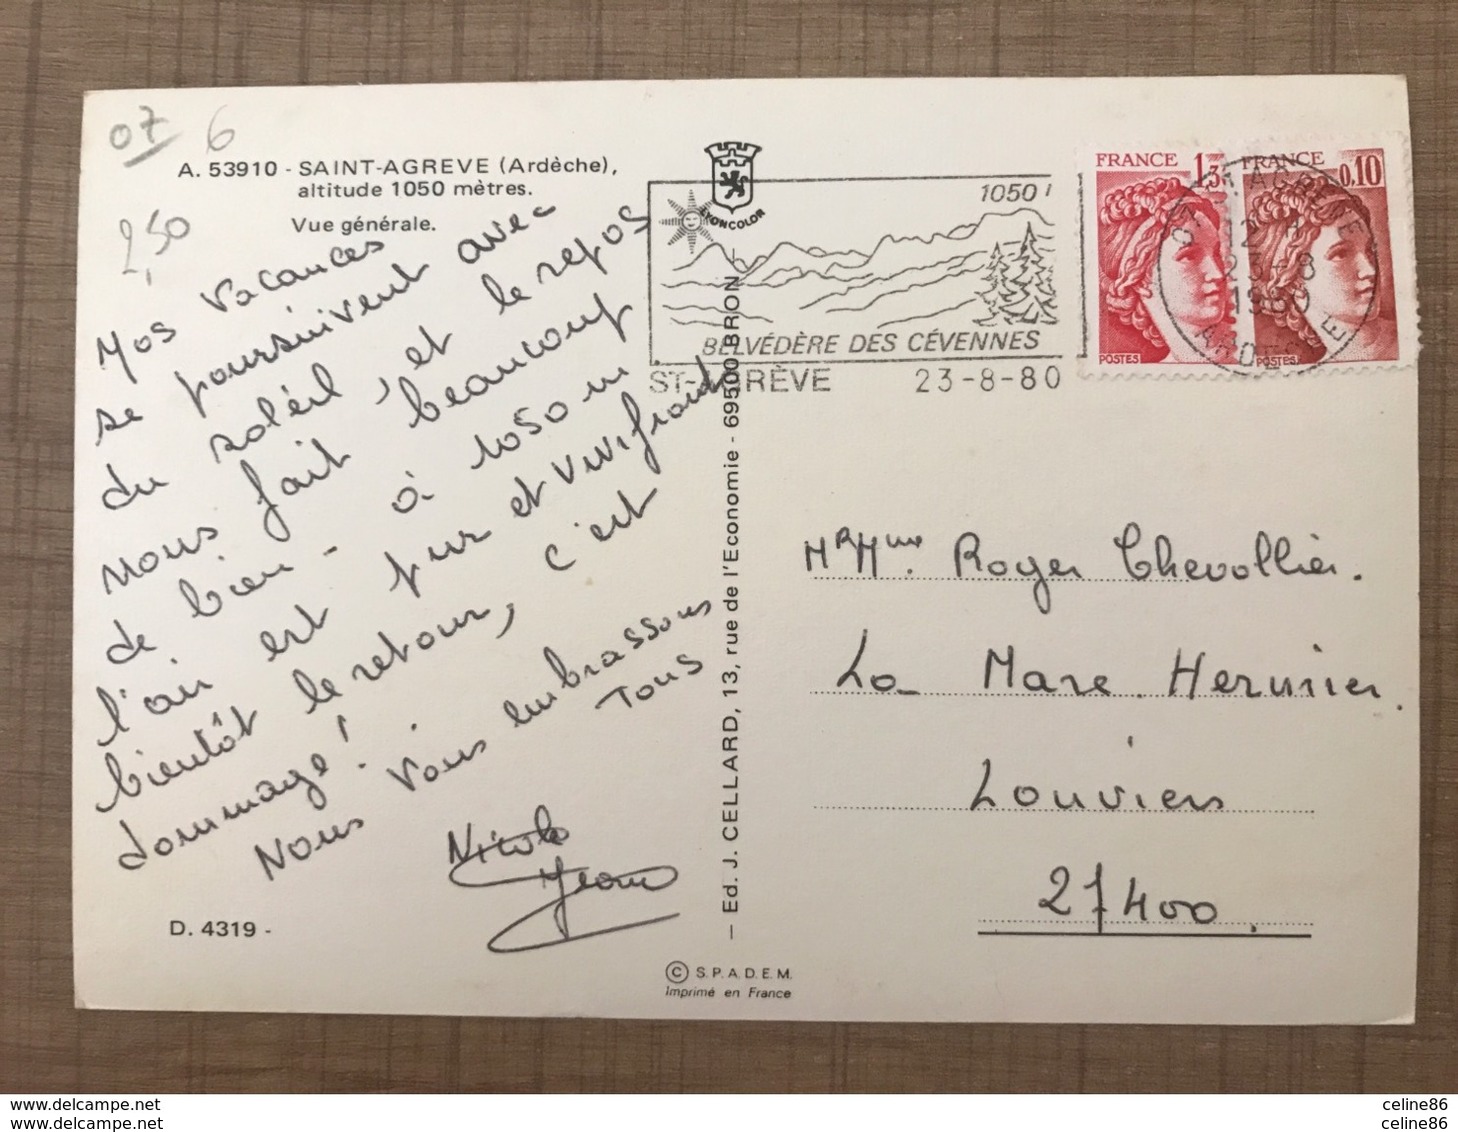 07 6
A. 53910 - SAINT-AGREVE (Ardèche),
altitude 1050 mètres.
Vue générale.
2,50
Nos vacances
se poursuivent avec
du soleil, et le repos
nous fait beaucoup
de bien - à 1050 m
l'air est pur et vivifiant
bientôt le retour, c'est
dommage!
Nous vous embrassons
Tous
Nicole
Jean
D. 4319 -
LYONCOLOR
1050
BELVÉDÈRE DES CÉVENNES
ST-AGRÈVE 23-8-80
FRANCE 1,3
POSTES
FRANCE 0,10
POSTES
ST AGREVE
12 H
23-8
1980
ARDECHE
— Ed. J. CELLARD, 13, rue de l'Economie - 69500 BRON —
Mr Mme Roger Chevollier.
La Mare Hermier.
Louviers
27400.
© S.P.A.D.E.M.
Imprimé en France
www.delcampe.net
www.delcampe.net
celine86
celine86